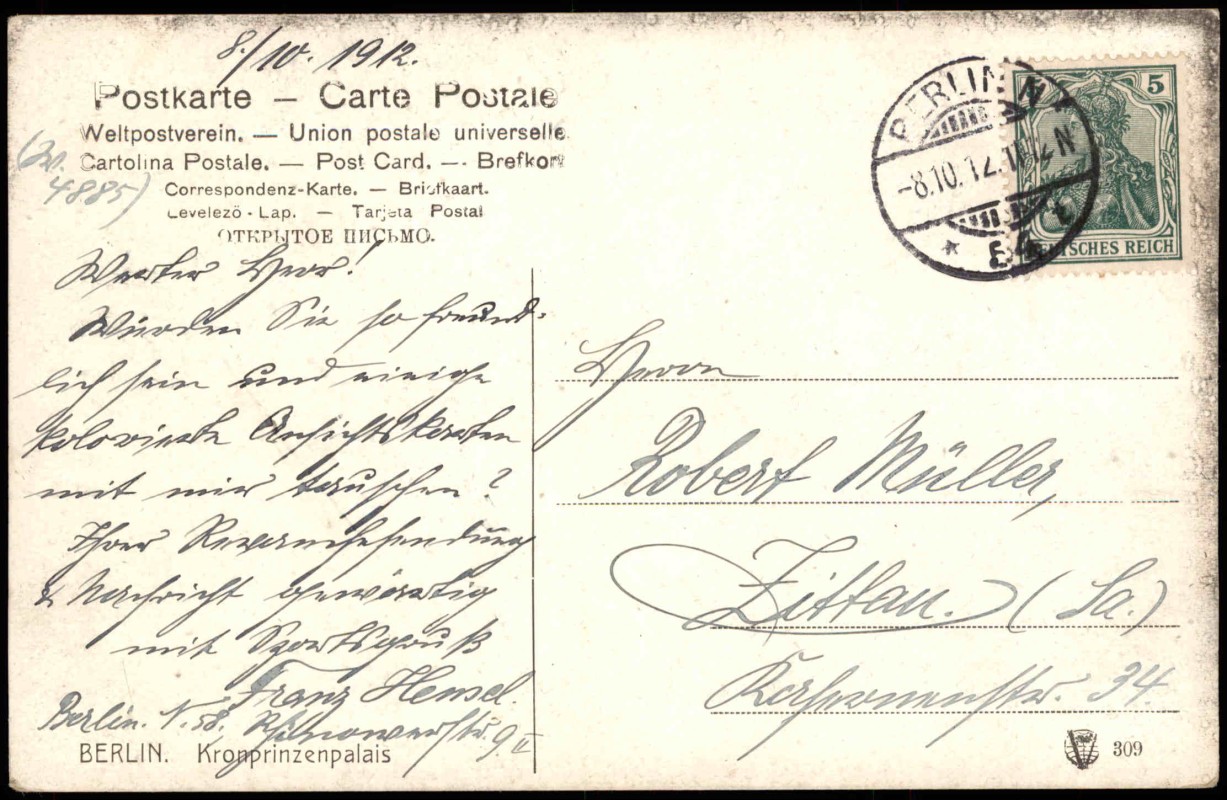 8./10. 1912.
Postkarte – Carte Postale
Weltpostverein. — Union postale universelle.
Cartolina Postale. — Post Card. — Brefkort
Correspondenz-Karte. — Briefkaart.
Levelező - Lap. — Tarjeta Postal
ОТКРЫТОЕ ПИСЬМО.
4885)
Werter Herr!
Würden Sie so freund-
lich sein und einige
kolorierte Ansichtskarten
mit mir tauschen?
Ihrer Revanchesendung
& Nachricht gewärtig
mit Sportsgruß
Franz Hensel.
Berlin. N. 58. 9 II
BERLIN. Kronprinzenpalais
BERLIN N
-8.10.12.11-12 N
* 58
5
DEUTSCHES REICH
Herrn
Robert Müller,
Zittau. (Sa.)
Kasernenstr. 34.
309